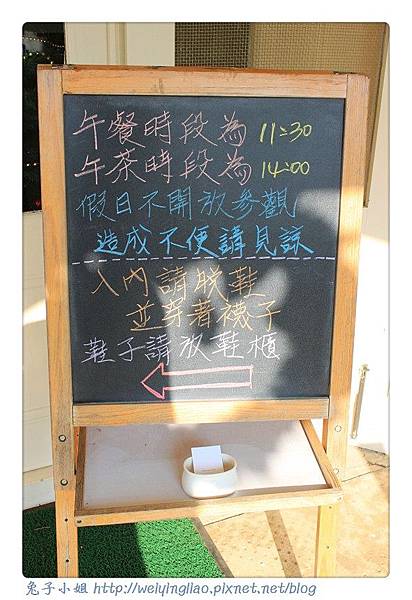 午餐時段為 11:30
午茶時段為 14:00
假日不開放參觀
造成不便請見諒
入內請脫鞋
並穿著襪子
鞋子請放鞋櫃
兔子小姐 http://welyingliao.pixnet.net/blog